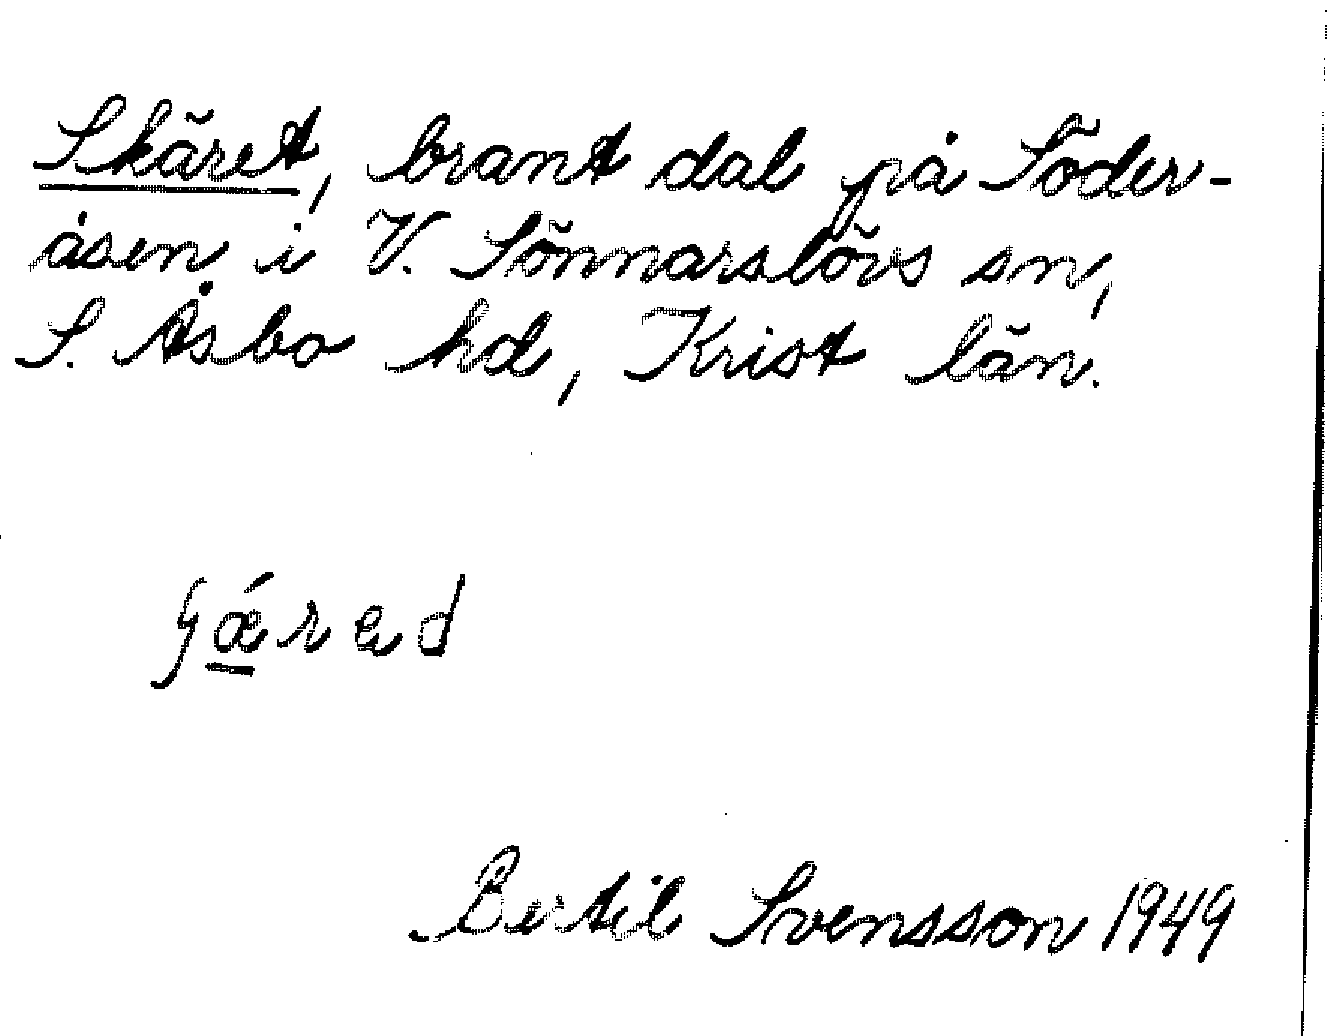 Skäret, brant dal på Söder-
åsen i V. Sönnarslövs sn,
S. Åsbo hd, Krist län.
Bertil Svensson 1949